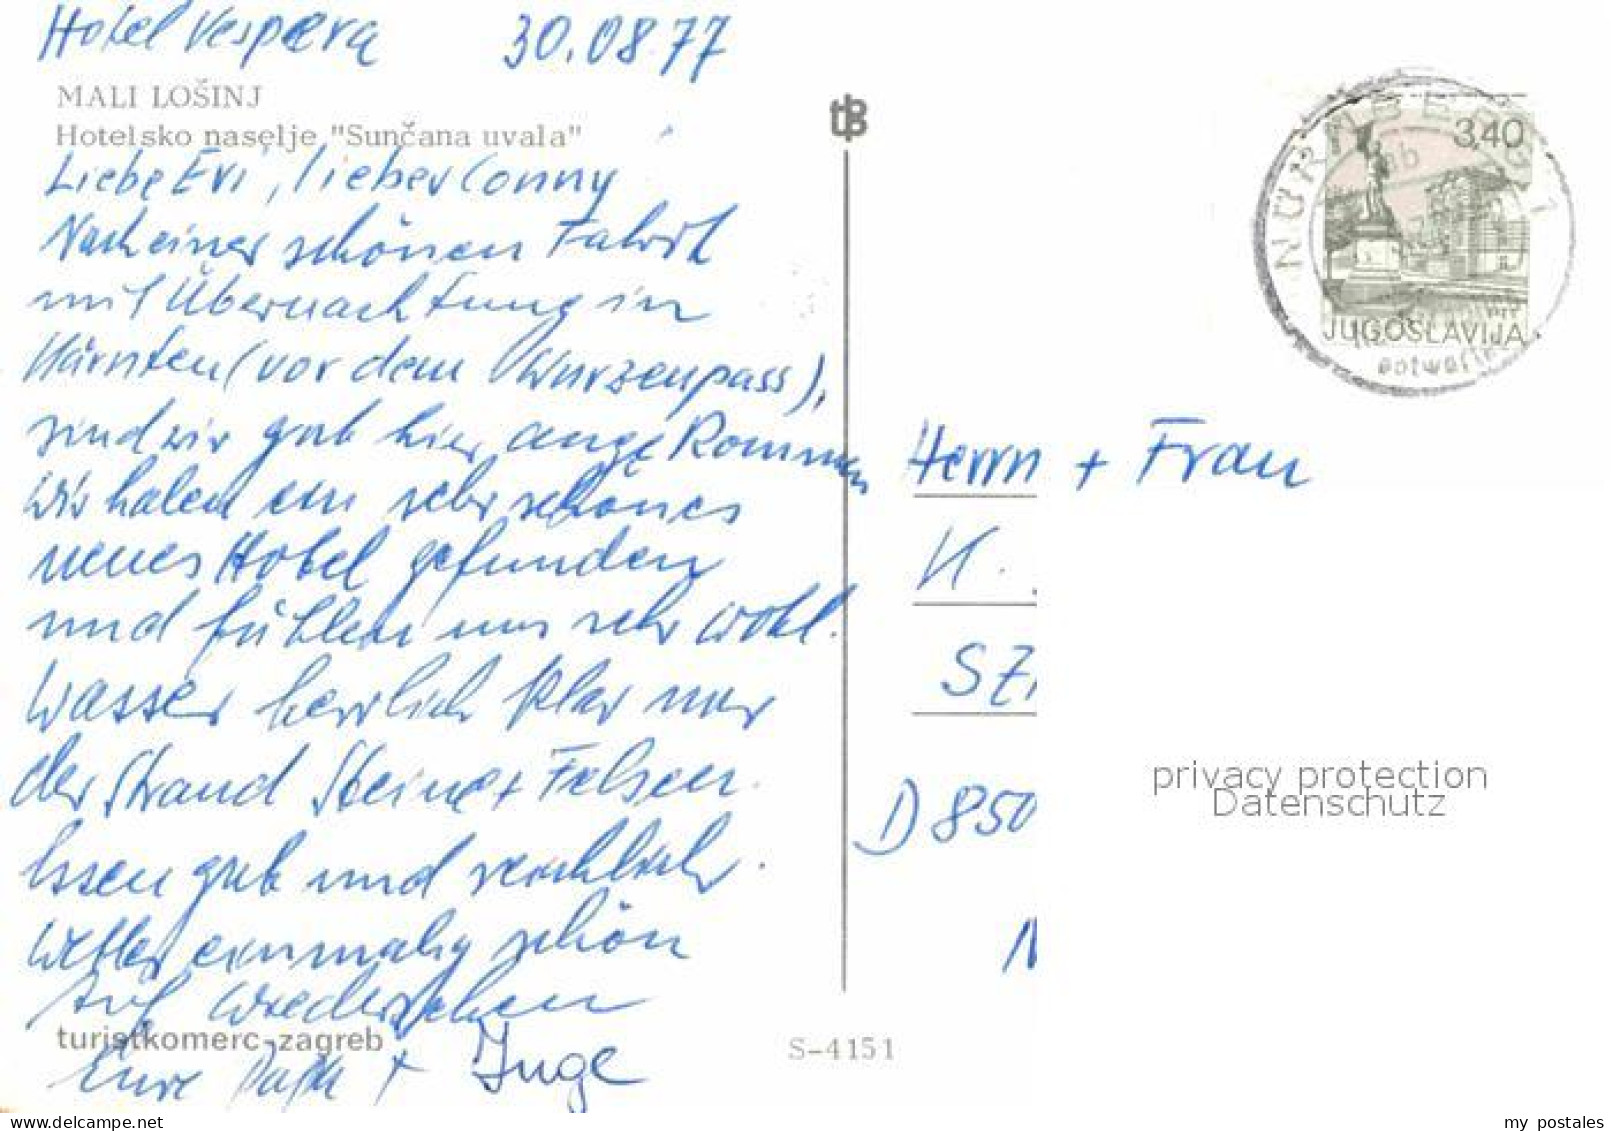 Hotel Vespera 30.08.77
MALI LOŠINJ
Hotelsko naselje "Sunčana uvala"
Liebe Evi, lieber Conny
Nach einer schönen Fahrt
mit Übernachtung in
Kärnten (vor dem Wurzenpass),
sind wir gut hier angekommen
Wir haben ein sehr schönes
neues Hotel gefunden
und fühlen uns sehr wohl.
Wasser herrlich klar nur
der Strand Steine + Felsen.
Essen gut und reichlich.
Wetter einmalig schön
Auf Wiedersehen
turistkomerc-zagreb
Eure + Inge
S-4151
NÜRNBERG 1
3,40
JUGOSLAVIJA
entwertet
Herrn + Frau
H.
SZ
D 850
N
privacy protection
Datenschutz
www.delcampe.net
my_postales